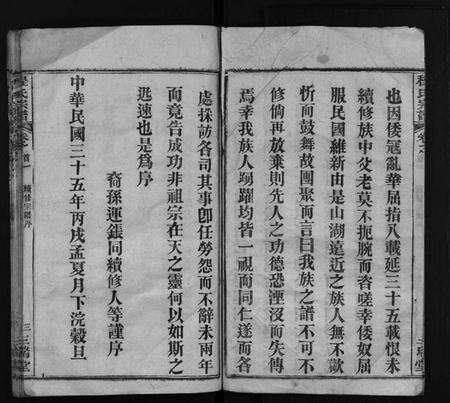 也因倭寇亂華屈指八載延三十五載恨未
續修族中父老莫不扼腕而咨嗟幸倭奴屈
服民國維新由是山湖遠近之族人無不歡
忻而鼓舞故團聚而言曰我族之譜不可不
修倘再放棄則先人之功德恐湮沒而失傳
焉幸我族人踴躍均皆一視而同仁遂而各
處採訪各司其事卽任勞怨而不辭未兩年
而竟告成功非祖宗在天之靈何以如斯之
迅速也是為序
裔孫運鋹同續修人等謹序
中華民國三十五年丙戌孟夏月下浣穀旦
程氏宗譜 卷之首一 續修宗譜序 三瑞堂